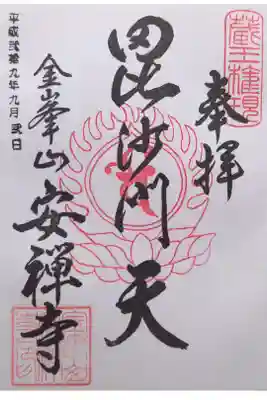 蔵王権現
奉拝
毘沙門天
金峯山
安禅寺
平成弐拾九年九月弐日